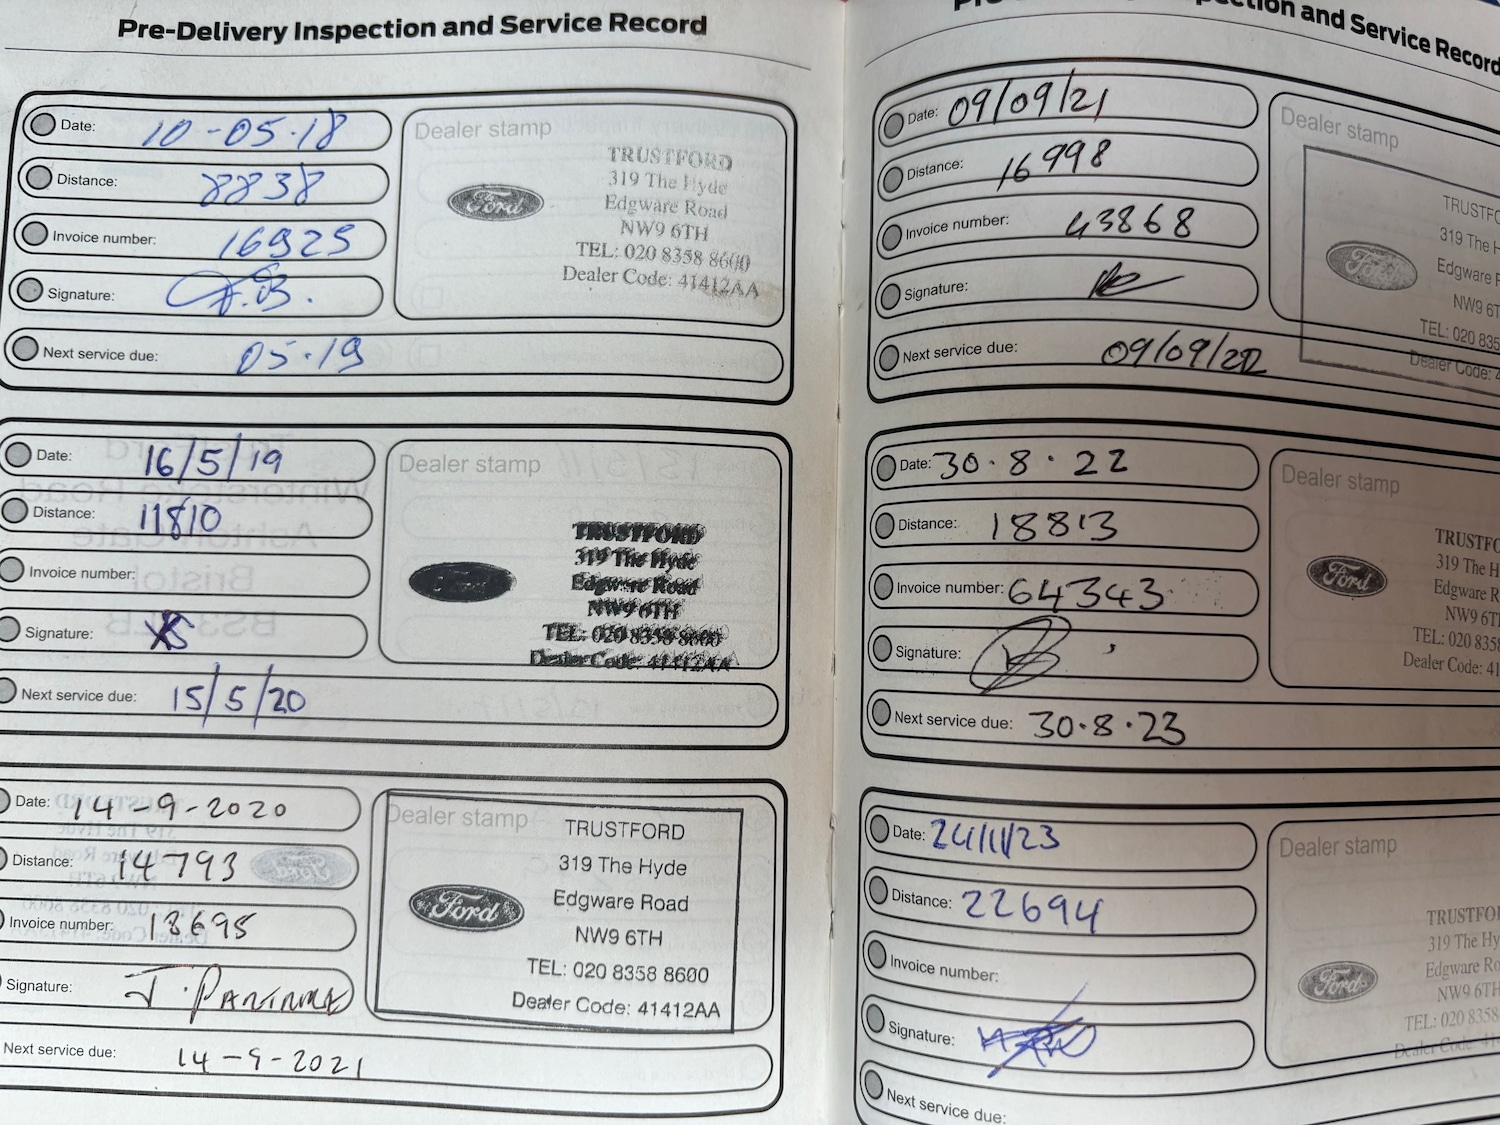 Pre-Delivery Inspection and Service Record
Date: 10-05-18
Distance: 8838
Invoice number: 16925
Signature: A.B.
Next service due: 05-19
Dealer stamp
Ford
TRUSTFORD
319 The Hyde
Edgware Road
NW9 6TH
TEL: 020 8358 8600
Dealer Code: 41412AA
Date: 16/5/19
Distance: 11810
Invoice number:
Signature:
Next service due: 15/5/20
Dealer stamp
Ford
TRUSTFORD
319 The Hyde
Edgware Road
NW9 6TH
TEL: 020 8358 8600
Dealer Code: 41412AA
Date: 14-9-2020
Distance: 14793
Invoice number: 13695
Signature:
Next service due: 14-9-2021
Dealer stamp
Ford
TRUSTFORD
319 The Hyde
Edgware Road
NW9 6TH
TEL: 020 8358 8600
Dealer Code: 41412AA
ction and Service Record
Date: 09/09/21
Distance: 16998
Invoice number: 43868
Signature:
Next service due: 09/09/22
Dealer stamp
Ford
TRUSTFO
319 The H
Edgware R
NW9 6T
TEL: 020 835
Dealer Code: 4
Date: 30.8.22
Distance: 18813
Invoice number: 64343
Signature:
Next service due: 30.8.23
Dealer stamp
Ford
TRUSTFO
319 The H
Edgware R
NW9 6T
TEL: 020 8358
Dealer Code: 41
Date: 24/11/23
Distance: 22694
Invoice number:
Signature:
Next service due:
Dealer stamp
Ford
TRUSTFO
319 The Hy
Edgware Ro
NW9 6TH
TEL: 020 8358
Dealer Code: 41